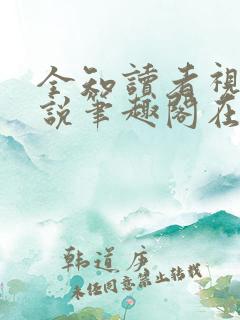 全知讀者視
説筆趣閣在
韩道庆
未经同意禁止转载